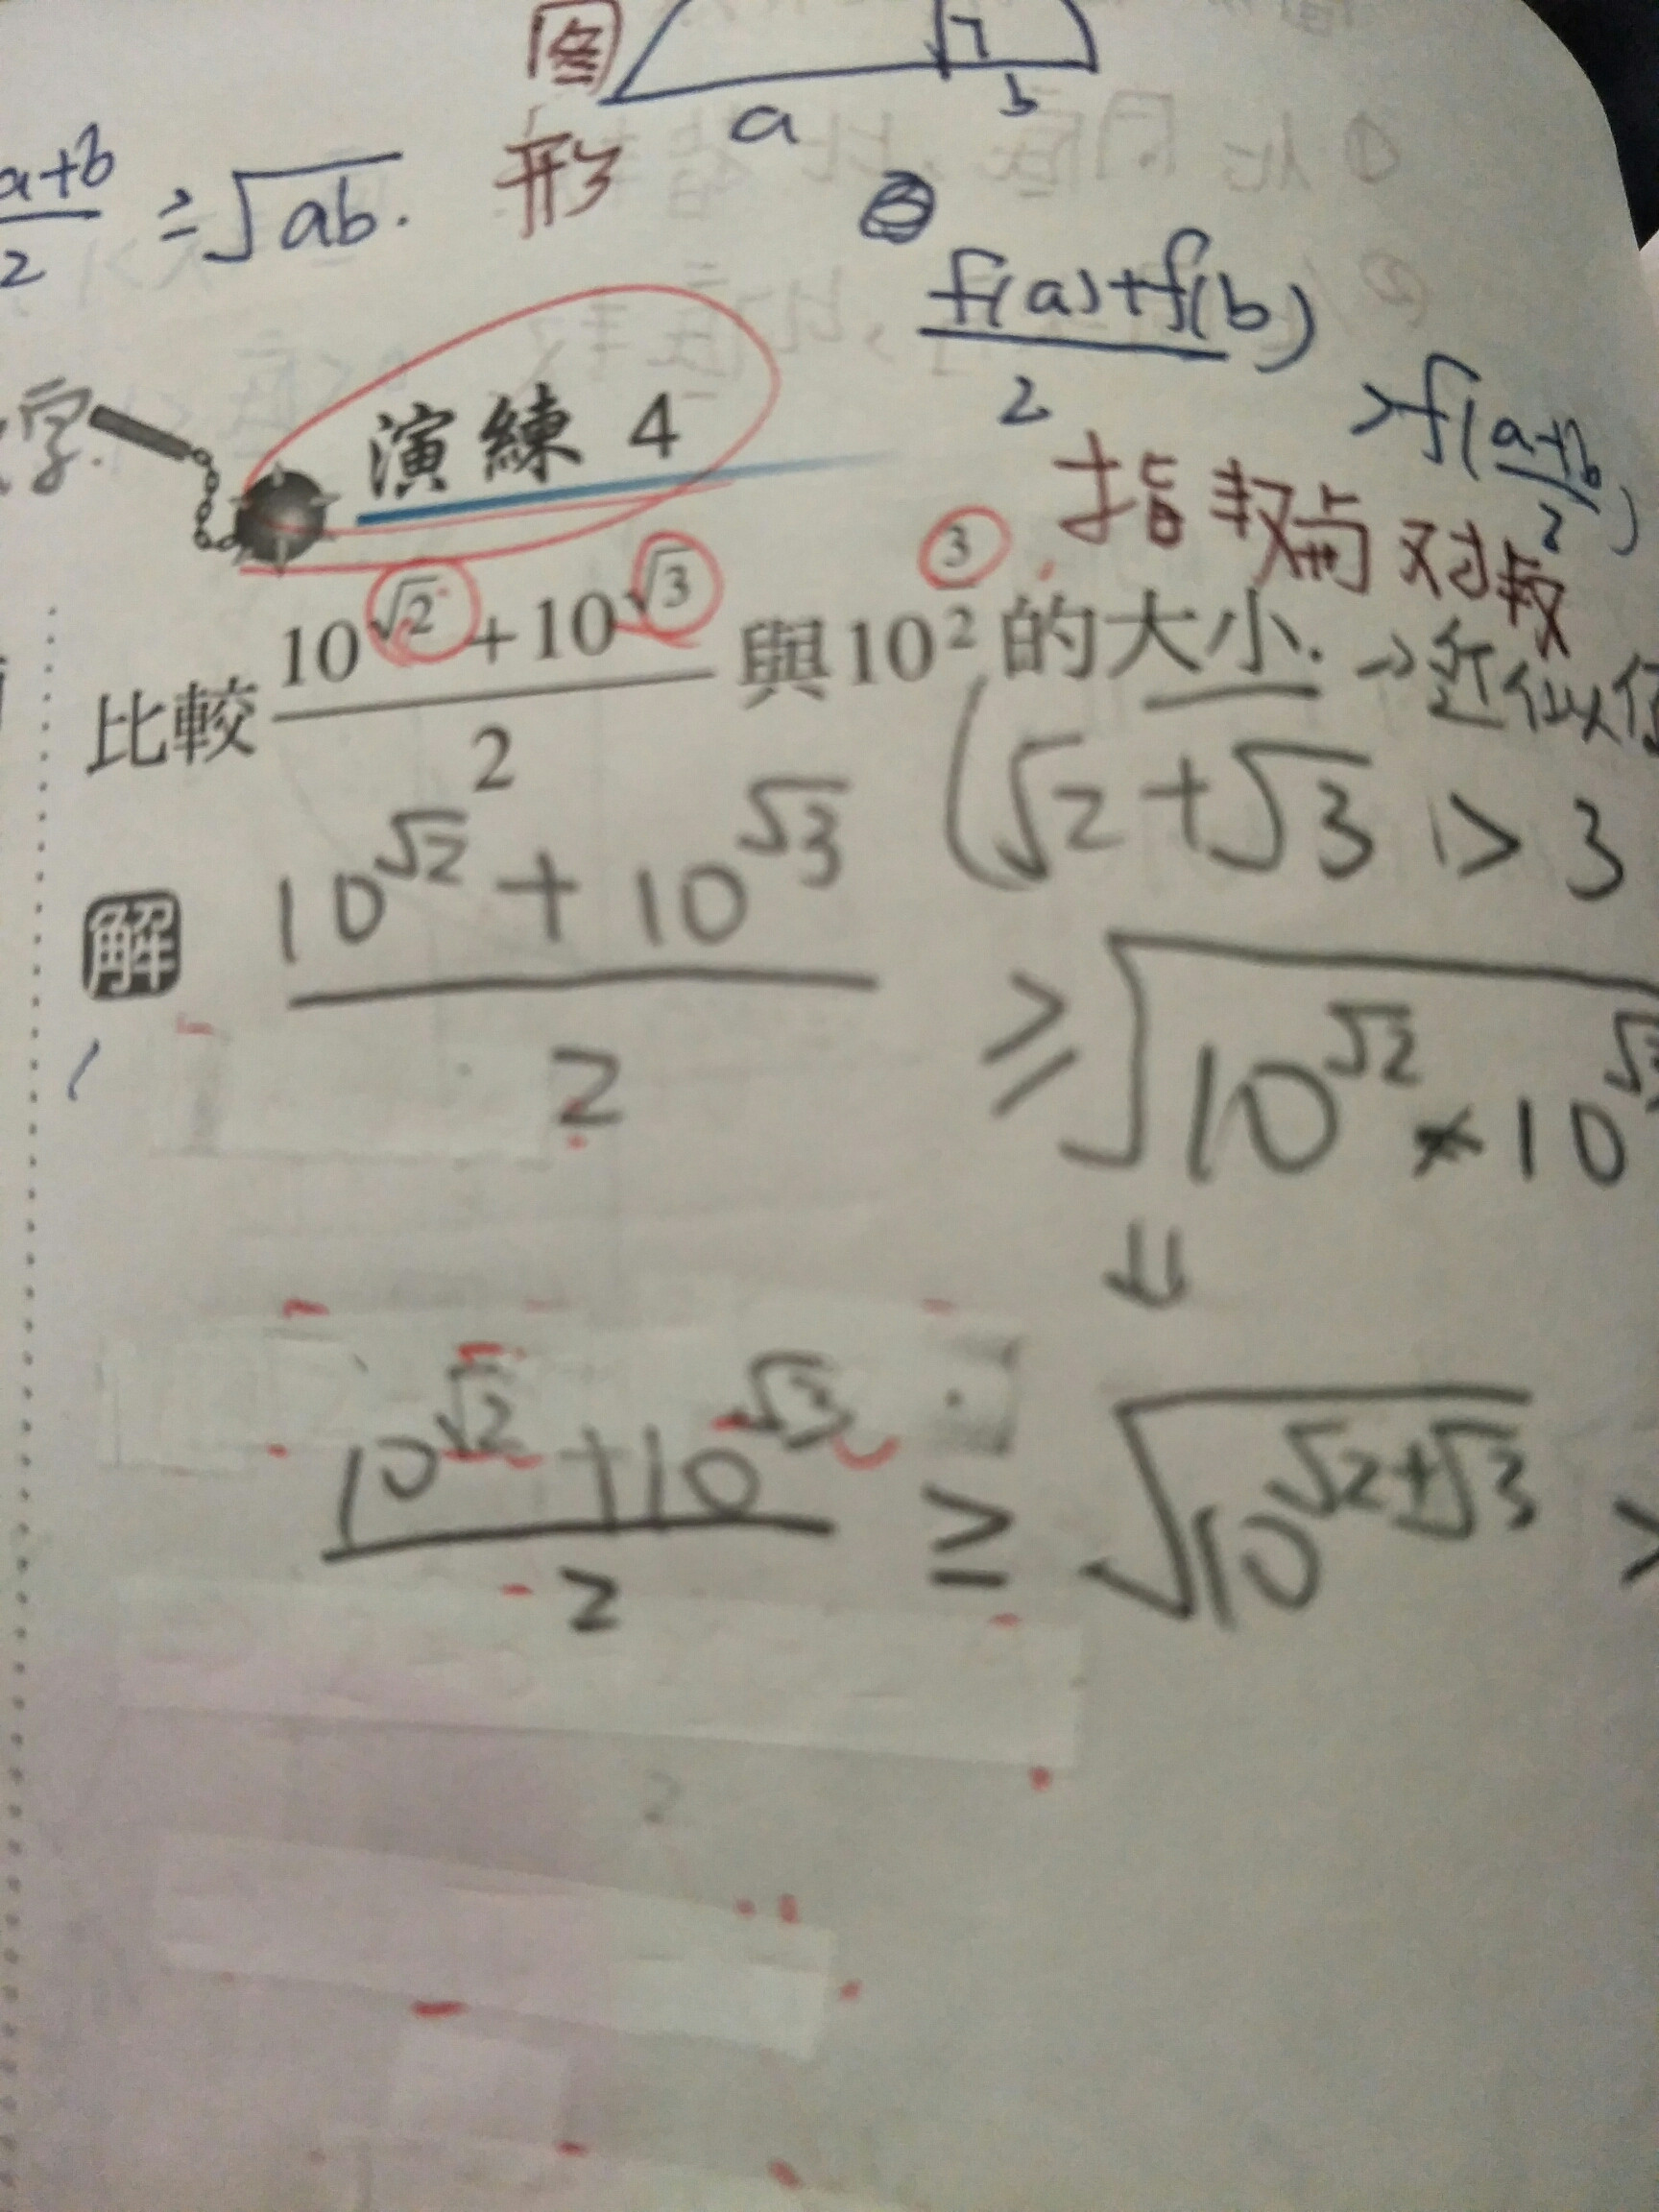 图
形
a b
a+b/2 ≥ √ab.
f(a)+f(b)/2 > f(a+b/2)
字.
演練 4
指數與对數
比較 (10^√2 + 10^√3)/2 與 10^(3/2) 的大小. → 近似
(√2 + √3 > 3
解 (10^√2 + 10^√3)/2 ≥ √10^√2 × 10^√3
⇓
(10^√2 + 10^√3)/2 ≥ √10^(√2+√3) >